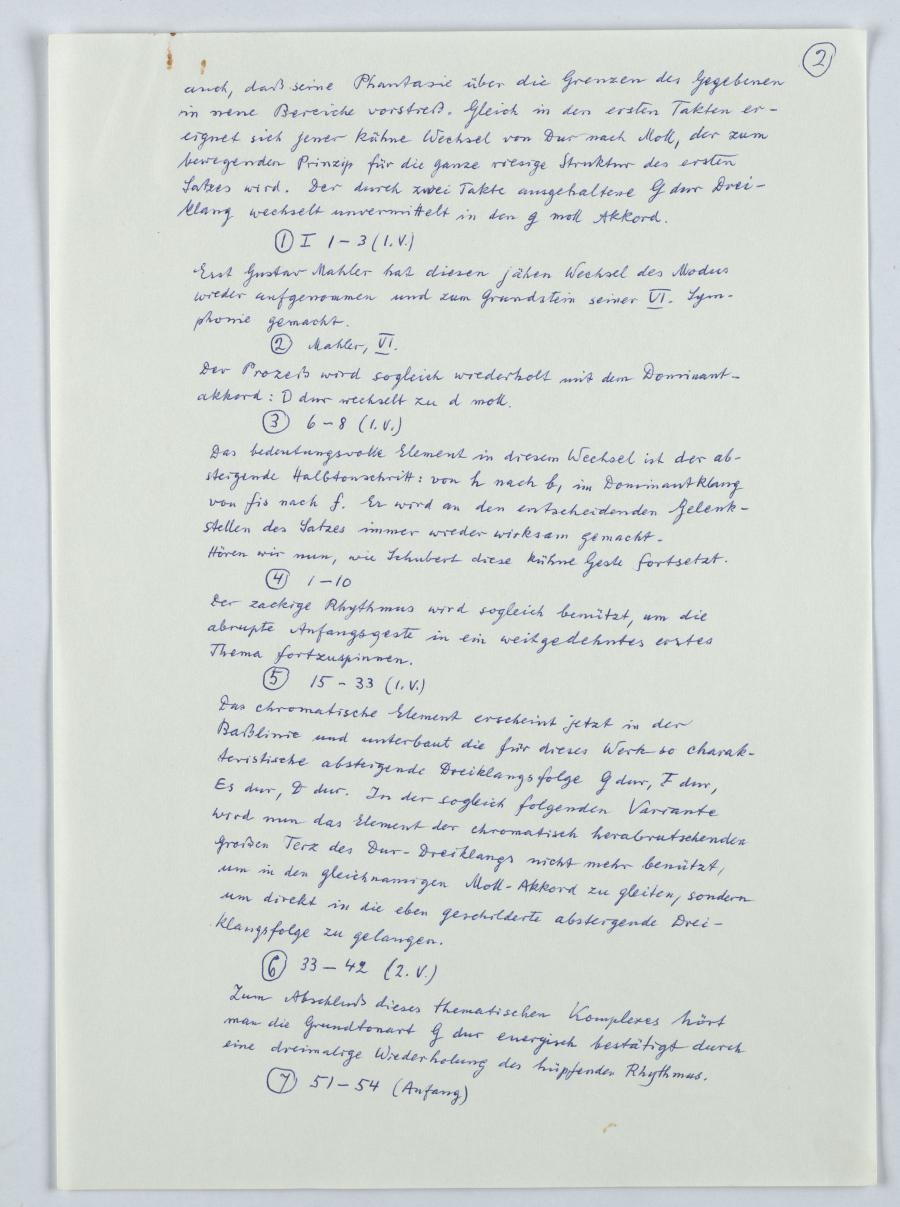 2
auch, daß seine Phantasie über die Grenzen des Gegebenen
in neue Bereiche vorstieß. Gleich in den ersten Takten er-
eignet sich jener kühne Wechsel von Dur nach Moll, der zum
bewegenden Prinzip für die ganze riesige Struktur des ersten
Satzes wird. Der durch zwei Takte ausgehaltene G dur Drei-
klang wechselt unvermittelt in den g moll Akkord.
① I 1–3 (1.V.)
Erst Gustav Mahler hat diesen jähen Wechsel des Modus
wieder aufgenommen und zum Grundstein seiner VI. Sym-
phonie gemacht.
② Mahler, VI.
Der Prozeß wird sogleich wiederholt mit dem Dominant-
akkord: D dur wechselt zu d moll.
③ 6–8 (1.V.)
Das bedeutungsvolle Element in diesem Wechsel ist der ab-
steigende Halbtonschritt: von h nach b, im Dominantklang
von fis nach f. Er wird an den entscheidenden Gelenk-
stellen des Satzes immer wieder wirksam gemacht.
Hören wir nun, wie Schubert diese kühne Geste fortsetzt.
④ 1–10
Der zackige Rhythmus wird sogleich benützt, um die
abrupte Anfangsgeste in ein weitgedehntes erstes
Thema fortzuspinnen.
⑤ 15–33 (1.V.)
Das chromatische Element erscheint jetzt in der
Baßlinie und unterbaut die für dieses Werk so charak-
teristische absteigende Dreiklangsfolge G dur, F dur,
Es dur, D dur. In der sogleich folgenden Variante
wird nun das Element der chromatisch herabrutschenden
großen Terz des Dur-Dreiklangs nicht mehr benützt,
um in den gleichnamigen Moll-Akkord zu gleiten, sondern
um direkt in die eben geschilderte absteigende Drei-
klangsfolge zu gelangen.
⑥ 33–42 (2.V.)
Zum Abschluß dieses thematischen Komplexes hört
man die Grundtonart G dur energisch bestätigt durch
eine dreimalige Wiederholung des hüpfenden Rhythmus.
⑦ 51–54 (Anfang)